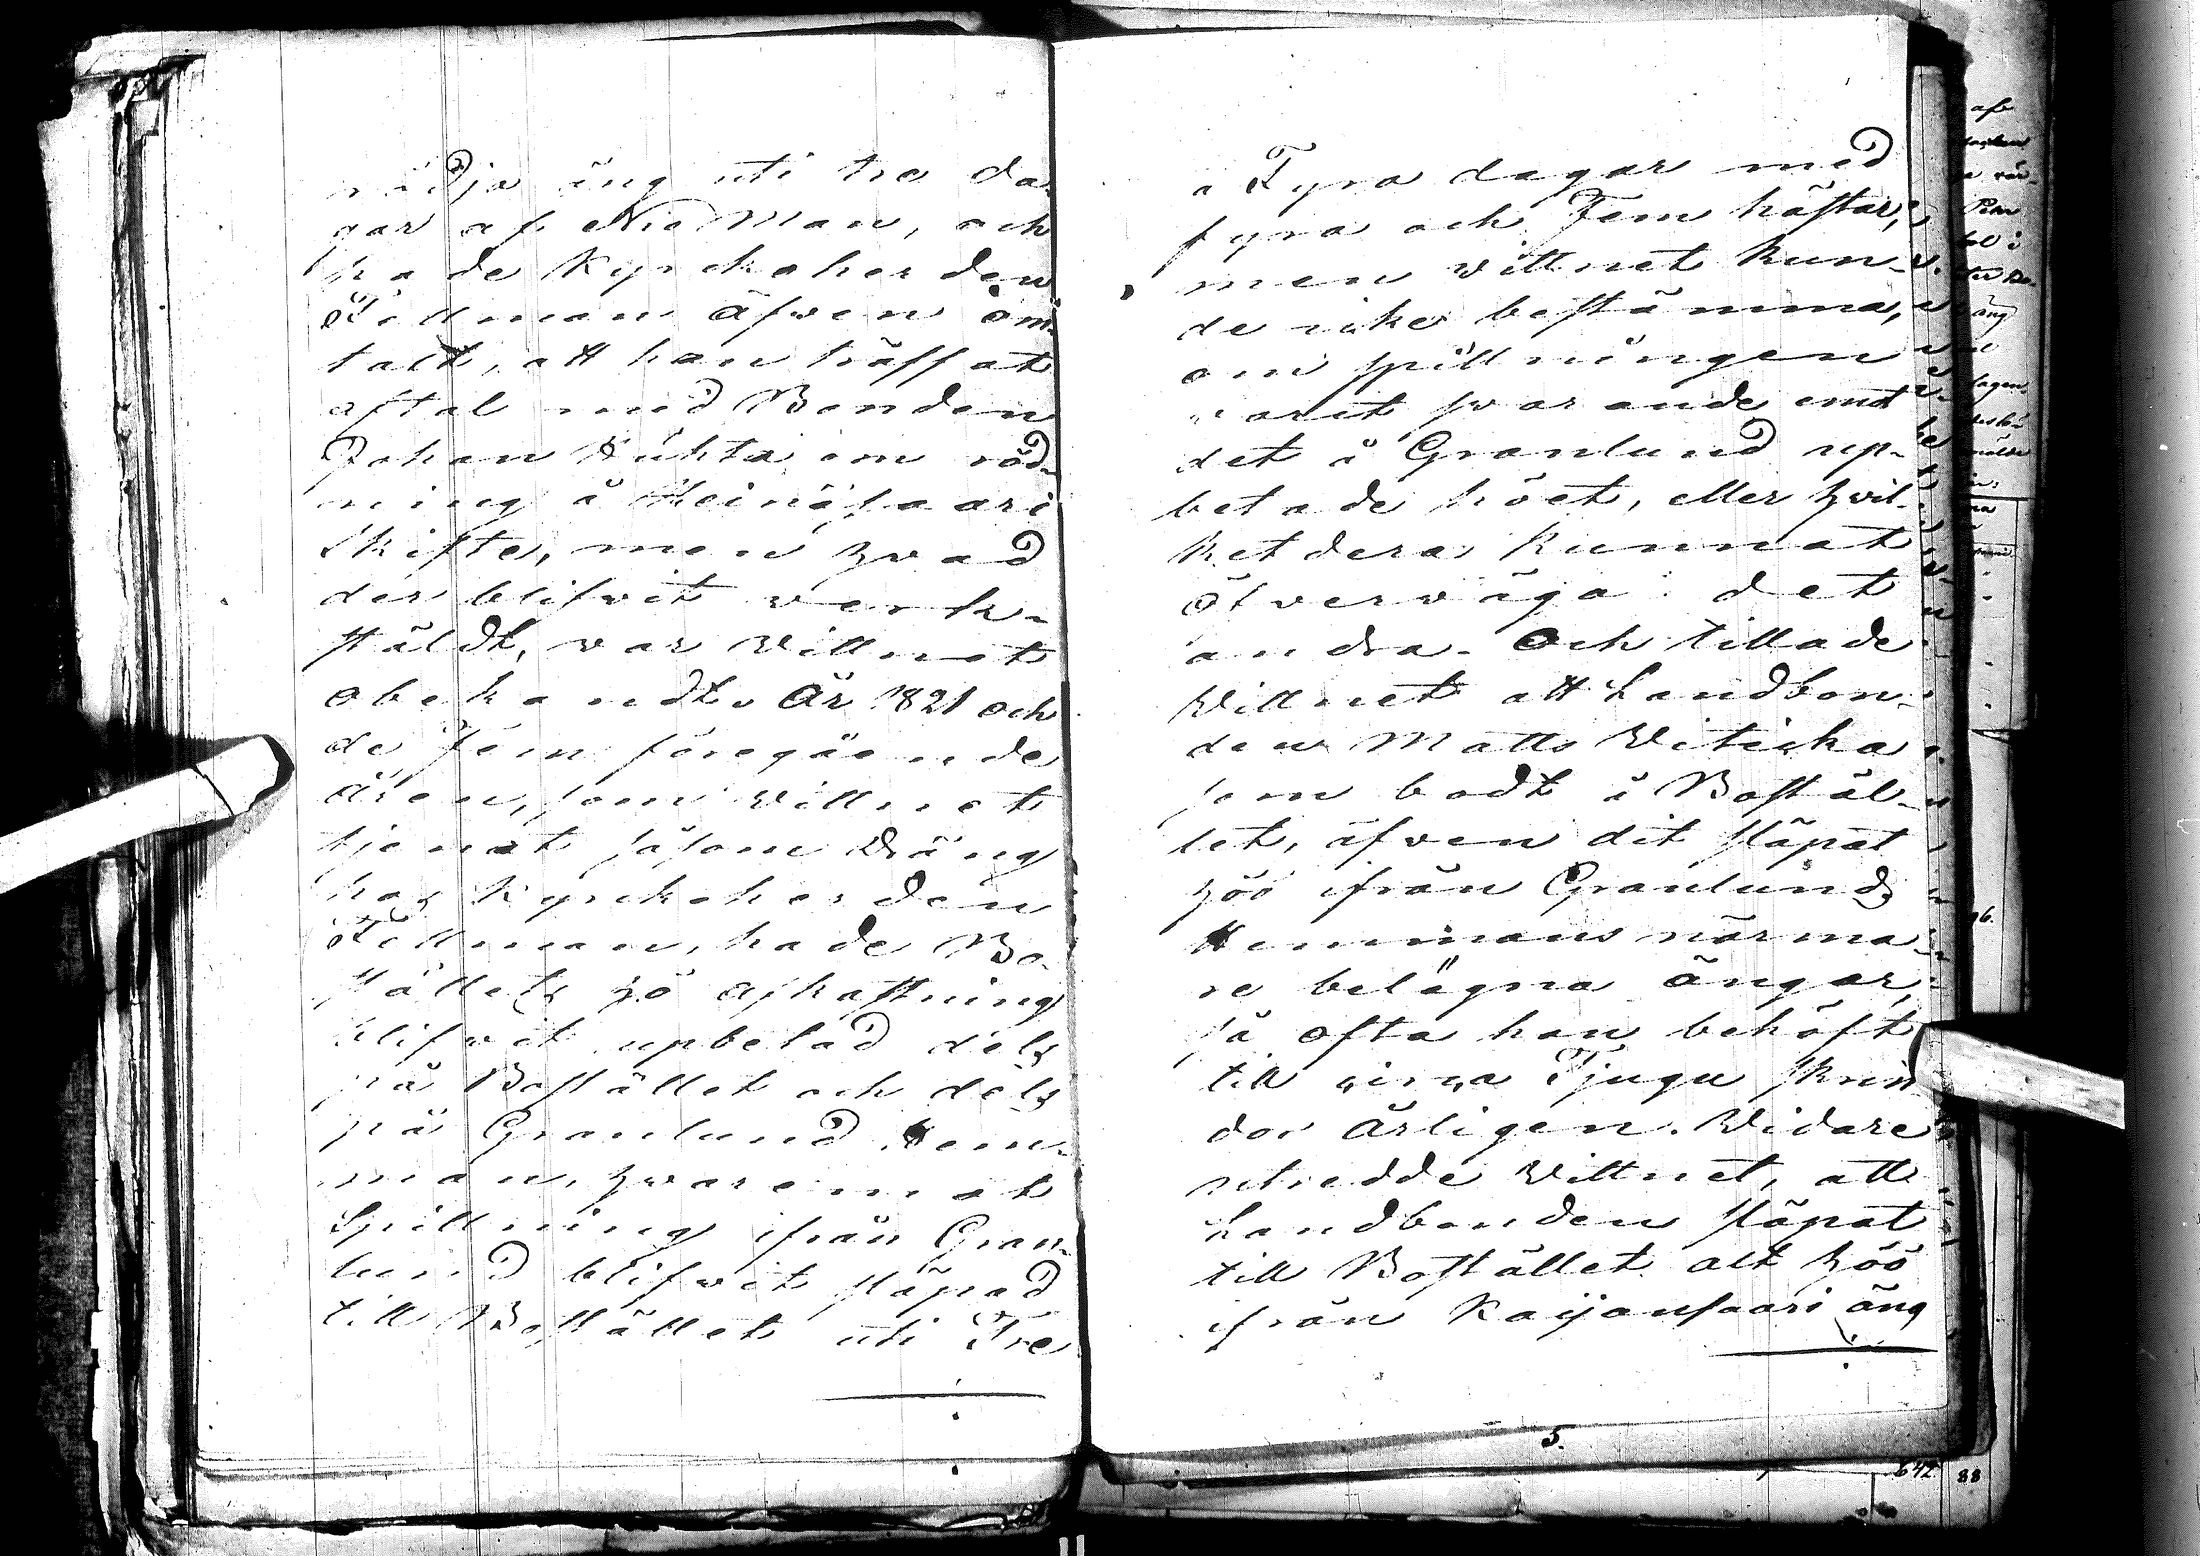 rödja äng uti tre da-
gar af Nio Man, och
hade Kyrckoherden
Födman äfwen om-
talt, att han träffat
aftal med Bonden
Johan Huhta om röd-
ning å Heinäsaari
Skifte, men hwad
der blifwit werk-
stäldt, war Wittnet
obekandt. År 1821 och
de Fem föregående
åren, som Wittnet
tjenat såsom Dräng
hos Kyrckoherden
Födman, hade Bo-
ställets hö afkastning
blifwit upbetad dels
på Bostället och dels
på Granlund Hem-
man, hwaremot
Spillning ifrån Gran-
lund blifwit släpad
till Bostället uti Tre
à Fyra dagar med
fyra och Fem hästar,
men Wittnet kun-
de icke bestämma,
om spillningen
warit swarande emot
det å Granlund up-
betade höet, eller hwil-
ket dera kunnat
öfwerwäga det
andra. Och tillade
Wittnet att Landbon-
den Matts Witicka
som bodt å Bostäl-
let, äfwen dit släpat
höö ifrån Granlunds
Hemmans närma-
re belägna ängar,
så ofta han behöft
till circa Tjugu skrin-
dor årligen. Widare
utredde Wittnet, att
Landbonden släpat
till Bostället alt höö
ifrån Kaijansaari äng
5.
642
88